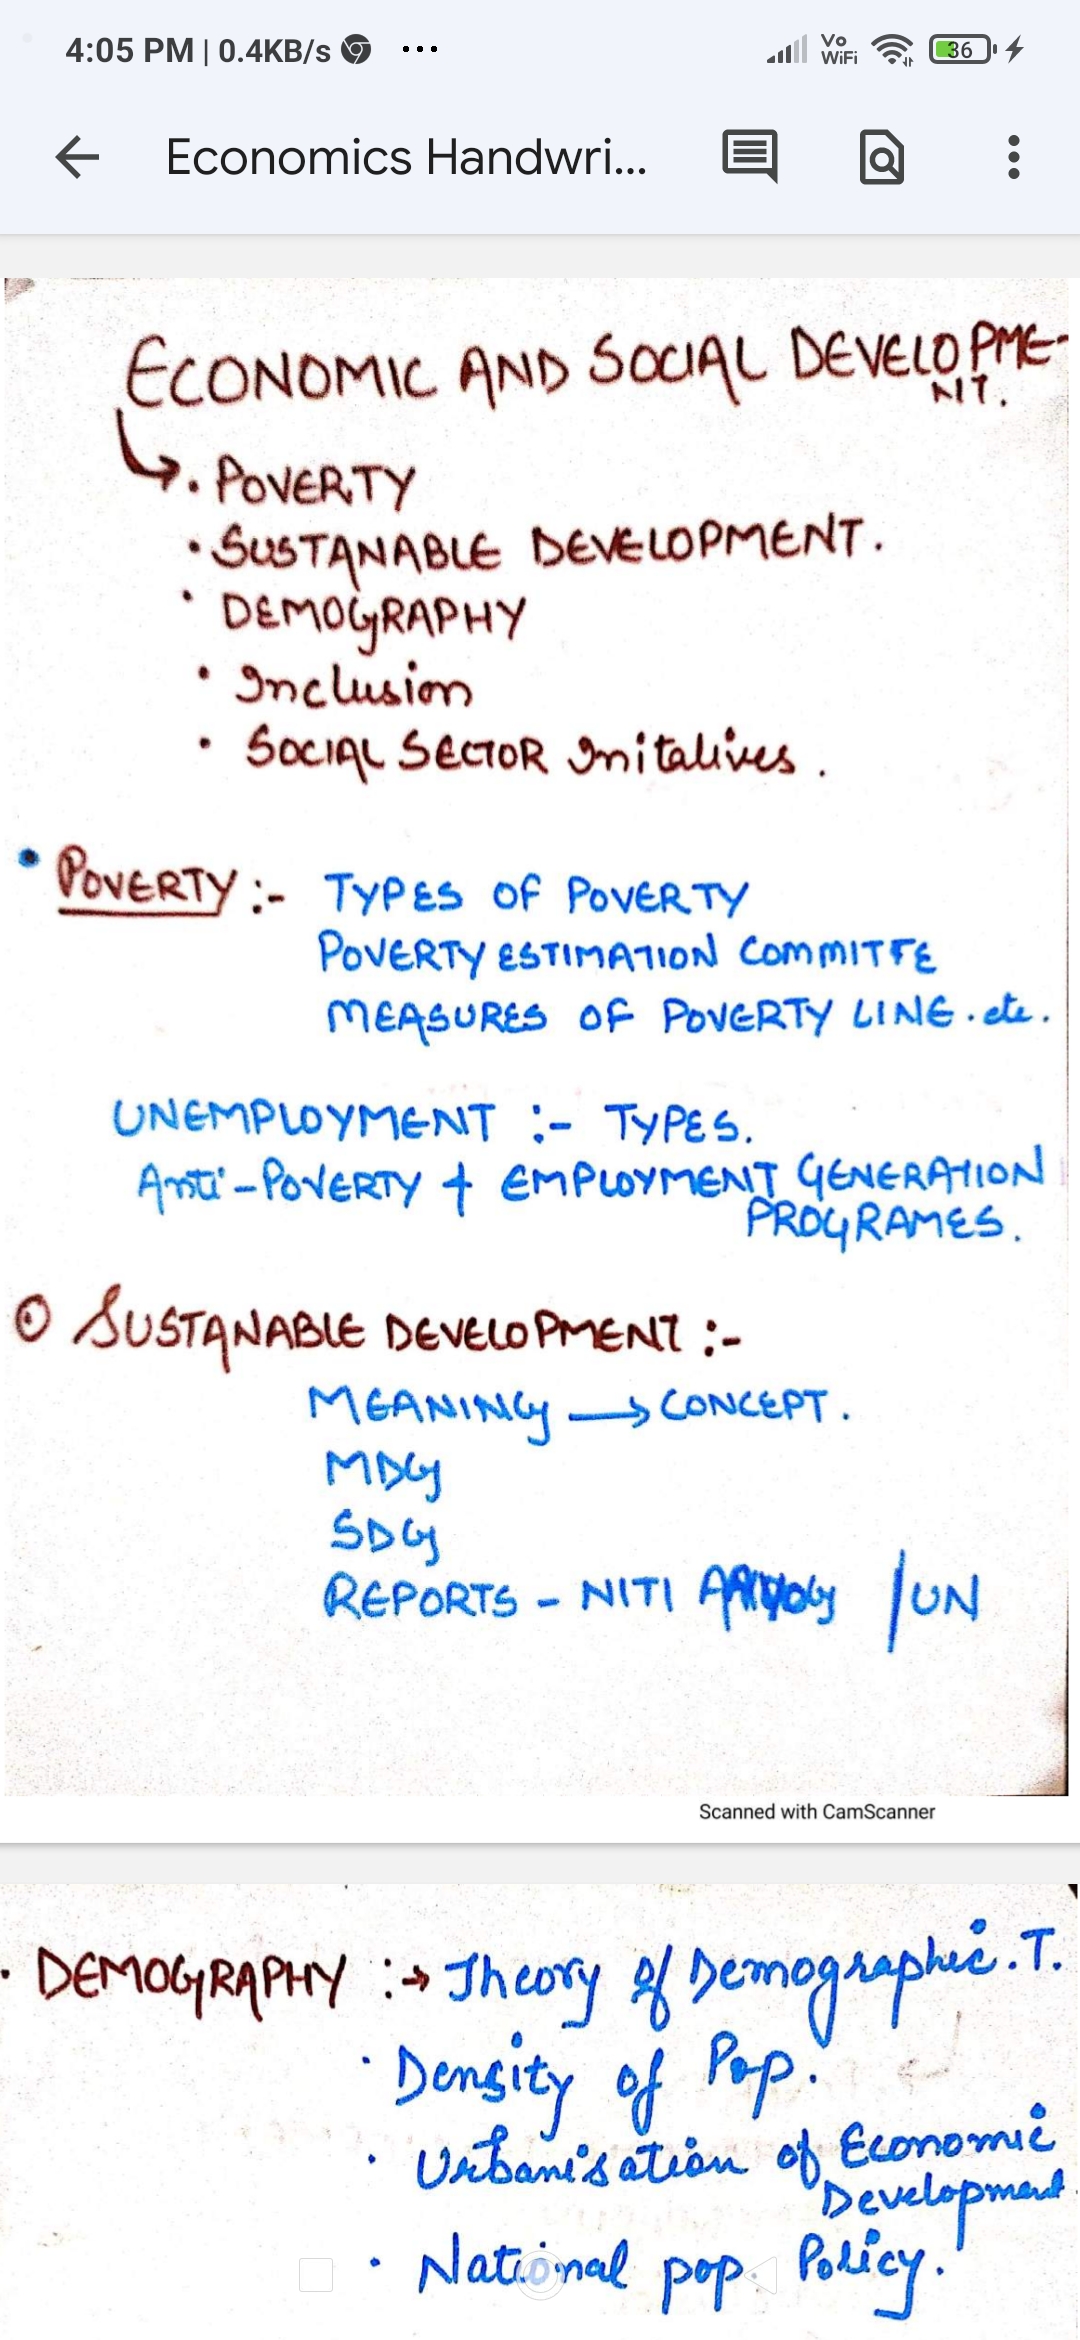 4:05 PM | 0.4KB/s ...
Vo WiFi 36
Economics Handwri...
ECONOMIC AND SOCIAL DEVELOPME-
NT.
. POVERTY
• SUSTANABLE DEVELOPMENT.
• DEMOGRAPHY
• Inclusion
• SOCIAL SECTOR Initalives.
• POVERTY :- TYPES OF POVERTY
POVERTY ESTIMATION COMMITTE
MEASURES OF POVERTY LINE. etc.
UNEMPLOYMENT :- TYPES.
Anti-POVERTY + EMPLOYMENT GENERATION
PROGRAMES.
SUSTANABLE DEVELOPMENT :-
MEANING → CONCEPT.
MDG
SDG
REPORTS - NITI AAYOG / UN
Scanned with CamScanner
• DEMOGRAPHY :→ Theory of Demographic. T.
• Density of Pop.
• Urbanisation of Economic
Development
• National pop. Policy.